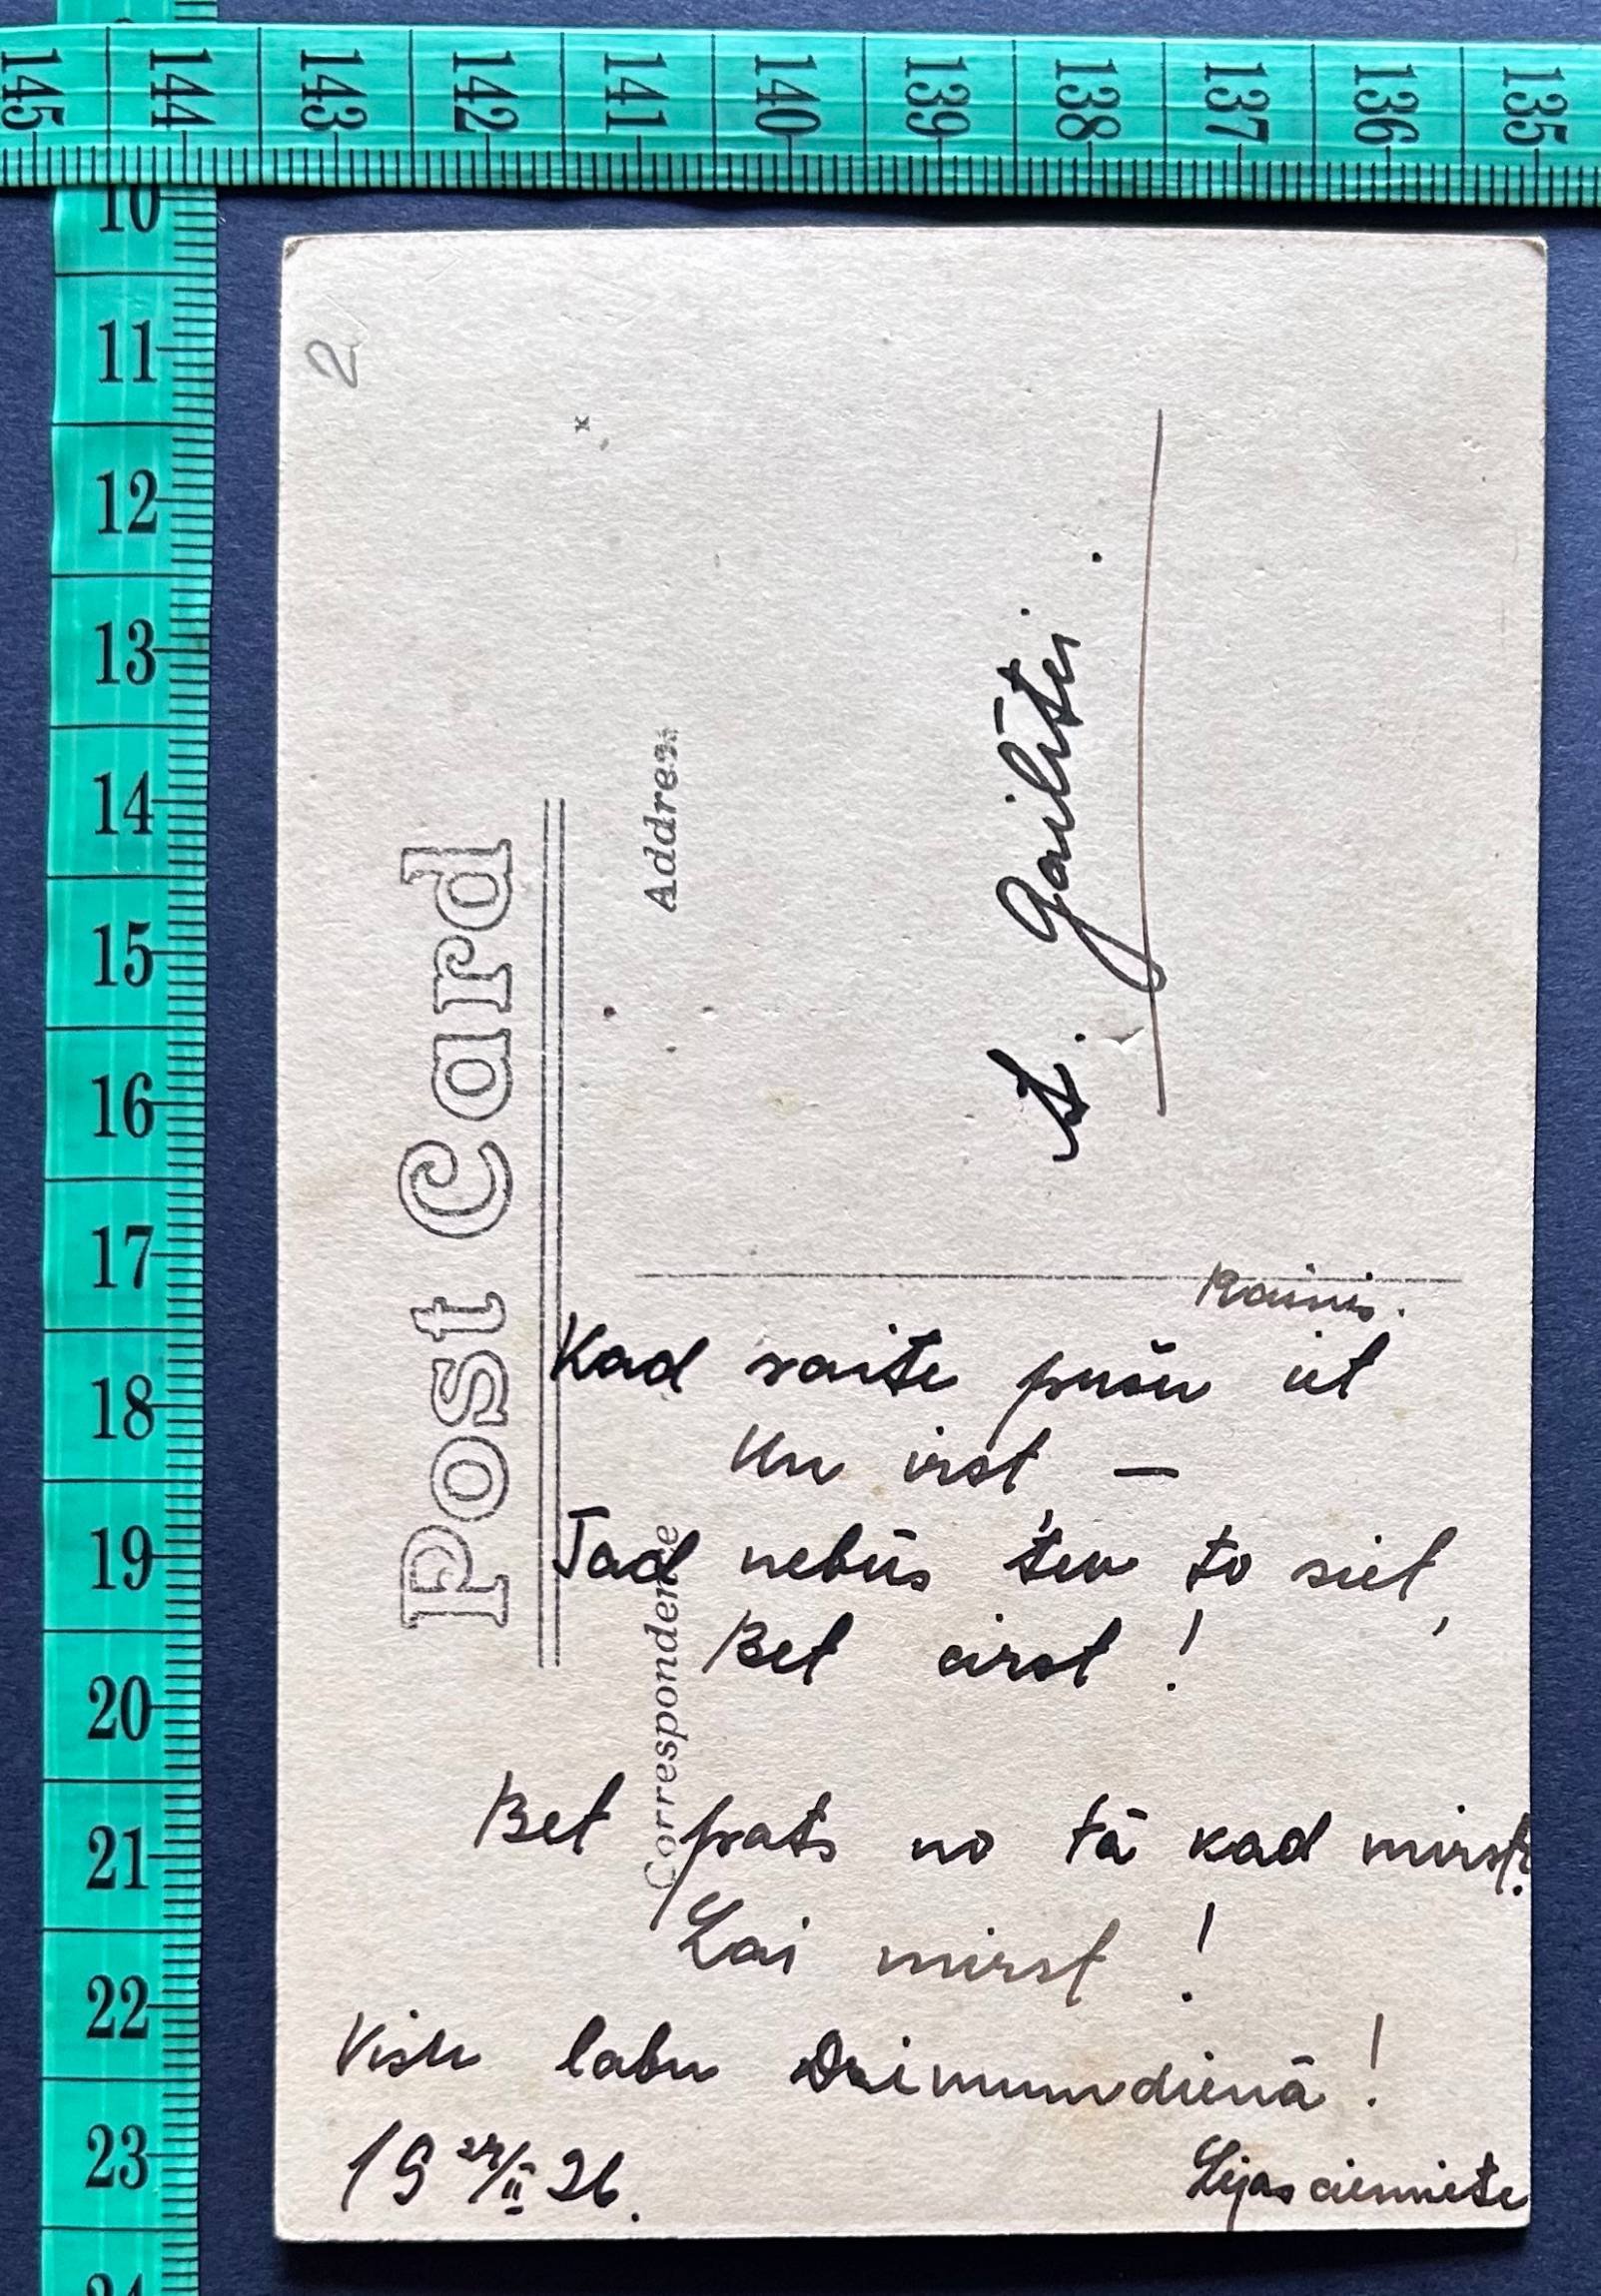 145 144 143 142 141 140 139 138 137 136 135
10
11
12
13
14
15
16
17
18
19
20
21
22
23
24
2
Post Card
Address
Correspondence
A. Gailītei.
Rainis.
Kad saite pušu iet
Un irst, —
Tad nebūs tev to siet,
Bet cirst!
Bet pats no tā kad mirst?
Lai mirst!
Visu labu Dzimumdienā!
19 24/II 26.
Lejas ciemiete